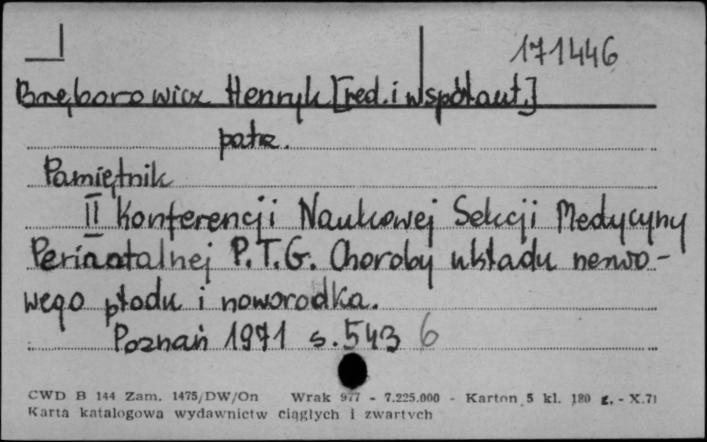 171446
Bręborowicz Henryk [red. i współaut.]
patrz.
Pamiętnik
II Konferencji Naukowej Sekcji Medycyny
Perinatalnej P.T.G. Choroby układu nerwo-
wego płodu i noworodka.
Poznań 1971 s. 543 6
CWD B 144 Zam. 1475/DW/On Wrak 977 - 7.225.000 - Karton 5 kl. 180 g. - X.71
Karta katalogowa wydawnictw ciągłych i zwartych